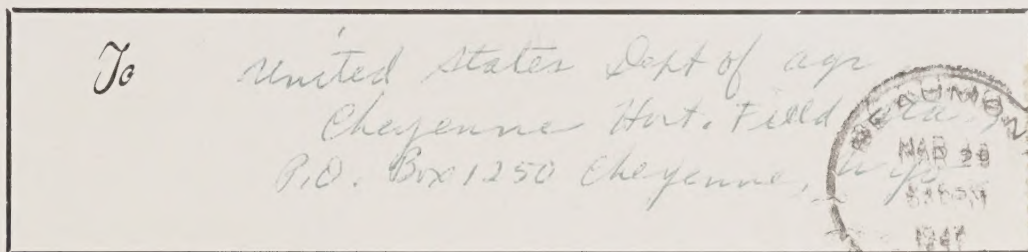 To United States Dept of agr
Cheyenne Hort. Field Sta.,
P.O. Box 1250 Cheyenne, Wyo
BEAUMONT
MAR
194